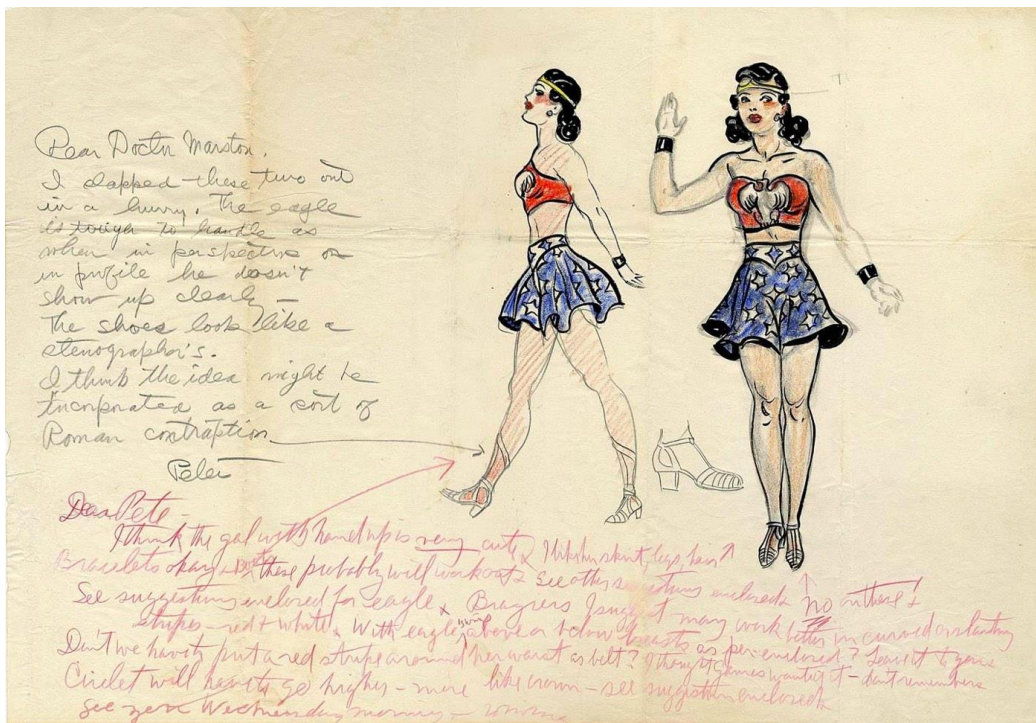 Dear Doctor Marston,
I slapped these two out
in a hurry. The eagle
is tough to handle as
when in perspective or
in profile he doesn't
show up clearly —
The shoes look like a
stenographer's.
I think the idea might be
incorporated as a sort of
Roman contraption
Peter
Dear Pete -
I think the gal with hand up is very cute. I like her skirt, legs, hair.
Bracelets okay + boots. These probably will work out. See other suggestions enclosed.
No on these!
See suggestions enclosed for eagle. Braziers I suggest may work better in curved or slanting
stripes - red + white. With eagle's wings above or below breasts as per enclosed? Leave it to you.
Don't we have to put a red stripe around her waist as belt? I thought Gaines wanted it - don't remember.
Circlet will have to go higher - more like crown - see suggestion enclosed.
See you Wednesday morning -